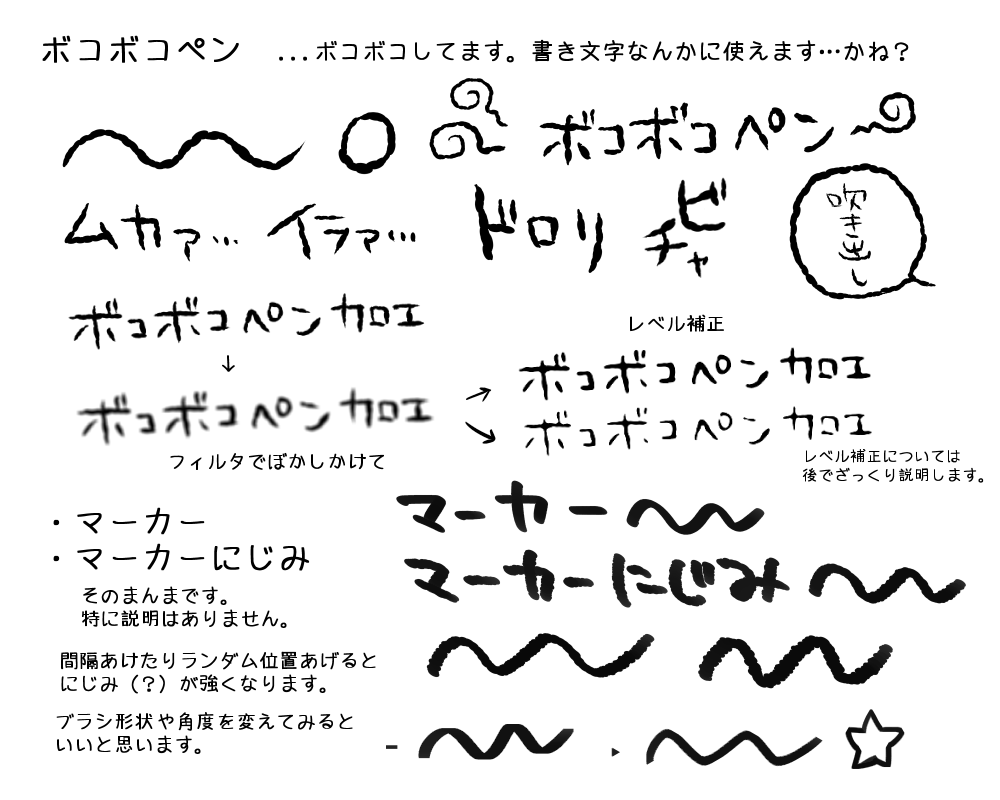 ボコボコペン ...ボコボコしてます。書き文字なんかに使えます…かね？
ボコボコペン
ムカァ… イラァ… ドロリ ビチャ
吹き出し
ボコボコペン加工
↓
ボコボコペン加工
フィルタでぼかしかけて
レベル補正
ボコボコペン加工
ボコボコペン加工
レベル補正については
後でざっくり説明します。
・マーカー
・マーカーにじみ
そのまんまです。
特に説明はありません。
間隔あけたりランダム位置あげると
にじみ（？）が強くなります。
ブラシ形状や角度を変えてみると
いいと思います。
マーカー
マーカーにじみ